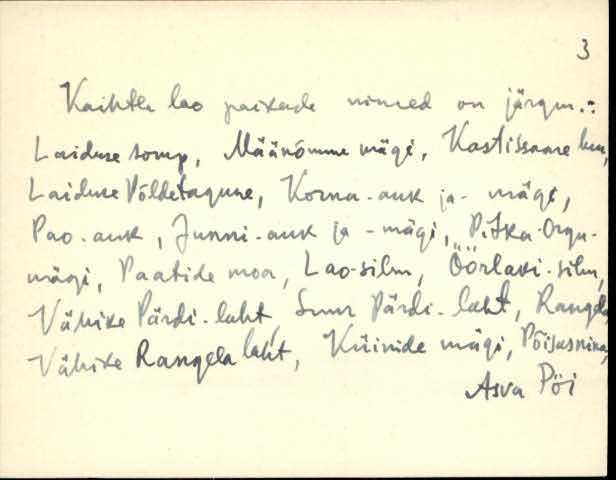 3
Kaihtla lao paikade nimed on järgm.:
Laiduse somp, Määnõmme mägi, Kastissaare
Laiduse Põldetagune, Korna-auk ja - mägi,
Pao-auk, Junni-auk ja - mägi, Pitka-Orgu-
mägi, Paatide moa, Lao-silm, Öörlavi-silm,
Vähike Pärdi-laht, Suur Pärdi-laht, Rangela
Vähike Rangela laht, Küinide mägi, Põisasnina,
Asva Pöi